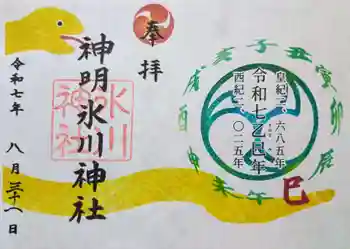 奉拝
皇紀二、六八五年
令和七乙巳年
西紀二、〇二五年
子丑寅卯辰巳午未申酉戌亥
神明氷川神社
氷川神社
令和七年 八月三十一日